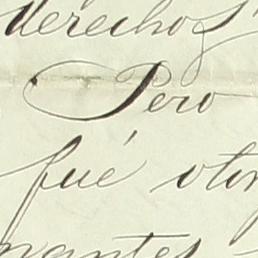 derechos
Pero
fué otor
nantes